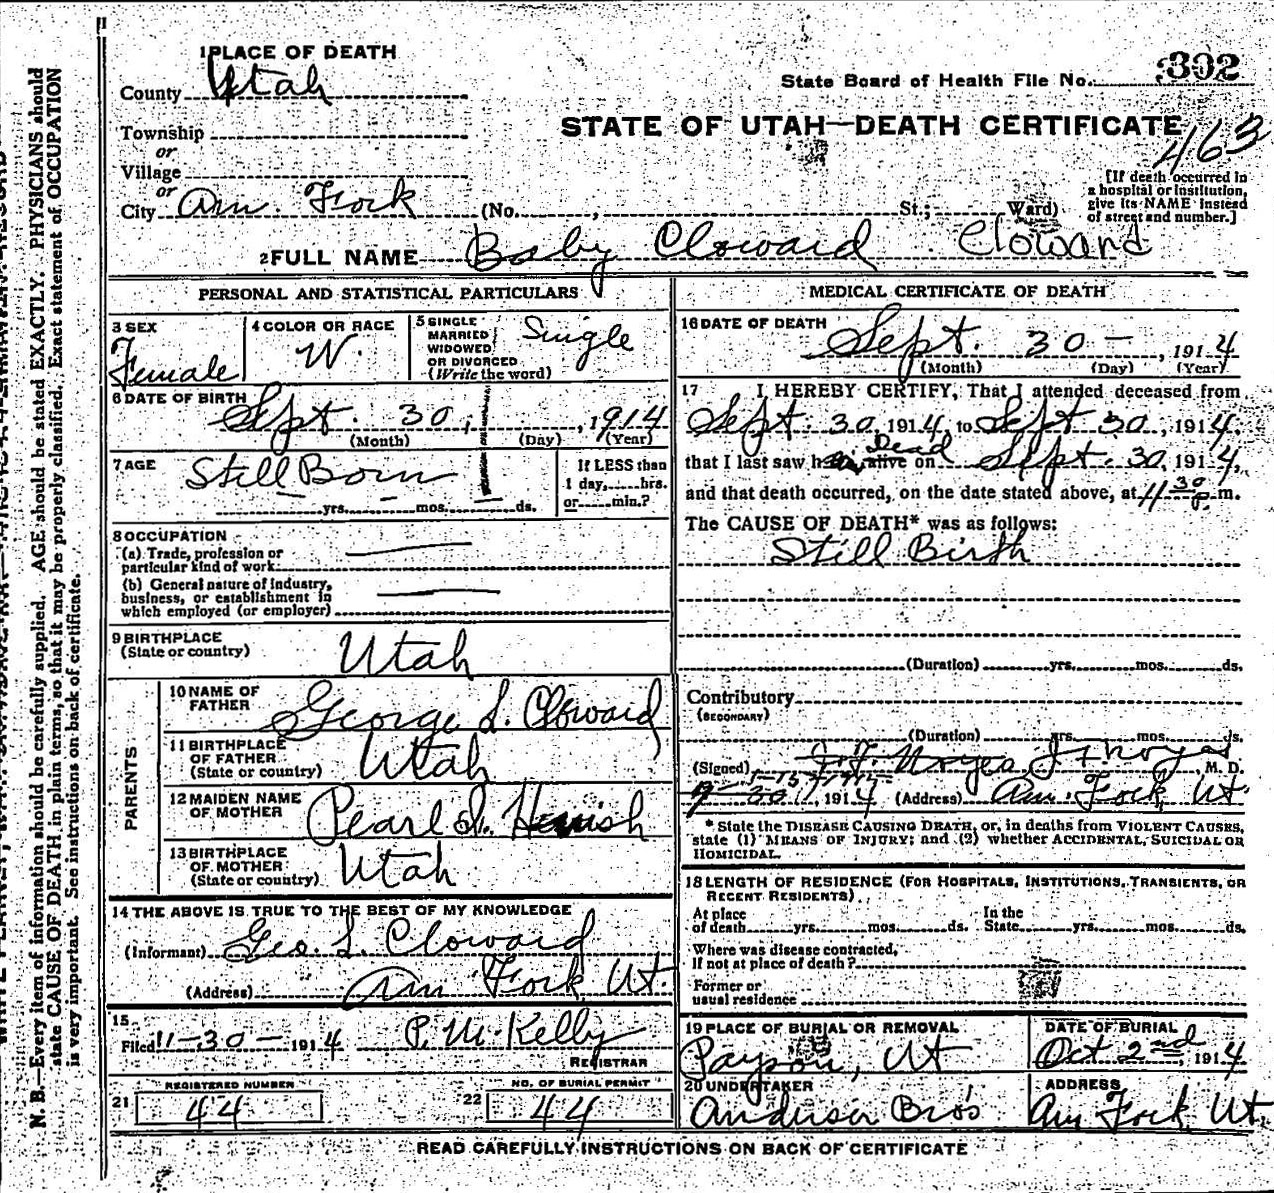 1 PLACE OF DEATH
County Utah
State Board of Health File No. 302
Township
or
Village
or
City Am. Fork (No. , St.; Ward)
STATE OF UTAH—DEATH CERTIFICATE
463
[If death occurred in
a hospital or institution,
give its NAME instead
of street and number.]
2 FULL NAME Baby Cloward Cloward
PERSONAL AND STATISTICAL PARTICULARS
3 SEX
Female
4 COLOR OR RACE
W.
5 SINGLE
MARRIED
WIDOWED
OR DIVORCED
(Write the word)
Single
6 DATE OF BIRTH
Sept. 30, , 1914
(Month) (Day) (Year)
7 AGE
Still Born
yrs. mos. ds.
If LESS than
1 day, hrs.
or min.?
8 OCCUPATION
(a) Trade, profession or
particular kind of work
(b) General nature of industry,
business, or establishment in
which employed (or employer)
9 BIRTHPLACE
(State or country)
Utah
PARENTS
10 NAME OF
FATHER
George L. Cloward
11 BIRTHPLACE
OF FATHER
(State or country)
Utah
12 MAIDEN NAME
OF MOTHER
Pearl
13 BIRTHPLACE
OF MOTHER
(State or country)
Utah
14 THE ABOVE IS TRUE TO THE BEST OF MY KNOWLEDGE
(Informant) Geo. L. Cloward
(Address) Am Fork Ut.
15
Filed 11-30- 1914 P. M. Kelly
REGISTRAR
REGISTERED NUMBER
21 44
NO. OF BURIAL PERMIT
22 44
MEDICAL CERTIFICATE OF DEATH
16 DATE OF DEATH
Sept. 30 — , 1914
(Month) (Day) (Year)
17 I HEREBY CERTIFY, That I attended deceased from
Sept. 30, 1914, to Sept 30, 1914.
that I last saw h alive Dead on Sept. 30, 1914,
and that death occurred, on the date stated above, at 11 30 p. m.
The CAUSE OF DEATH* was as follows:
Still Birth
(Duration) yrs. mos. ds.
Contributory
(SECONDARY)
(Duration) yrs. mos. ds.
(Signed) Noyes Noyes, M. D.
9-30, 1914 (Address) Am. Fork Ut.
* State the DISEASE CAUSING DEATH, or, in deaths from VIOLENT CAUSES,
state (1) MEANS OF INJURY; and (2) whether ACCIDENTAL, SUICIDAL OR
HOMICIDAL.
18 LENGTH OF RESIDENCE (FOR HOSPITALS, INSTITUTIONS, TRANSIENTS, OR
RECENT RESIDENTS)
At place
of death yrs. mos. ds.
In the
State yrs. mos. ds.
Where was disease contracted,
If not at place of death?
Former or
usual residence
19 PLACE OF BURIAL OR REMOVAL
Payson, Ut
DATE OF BURIAL
Oct 2nd, 1914
20 UNDERTAKER
Anderson Bro's
ADDRESS
Am Fork Ut.
READ CAREFULLY INSTRUCTIONS ON BACK OF CERTIFICATE
N. B.—Every item of information should be carefully supplied. AGE should be stated EXACTLY. PHYSICIANS should
state CAUSE OF DEATH in plain terms, so that it may be properly classified. Exact statement of OCCUPATION
is very important. See instructions on back of certificate.